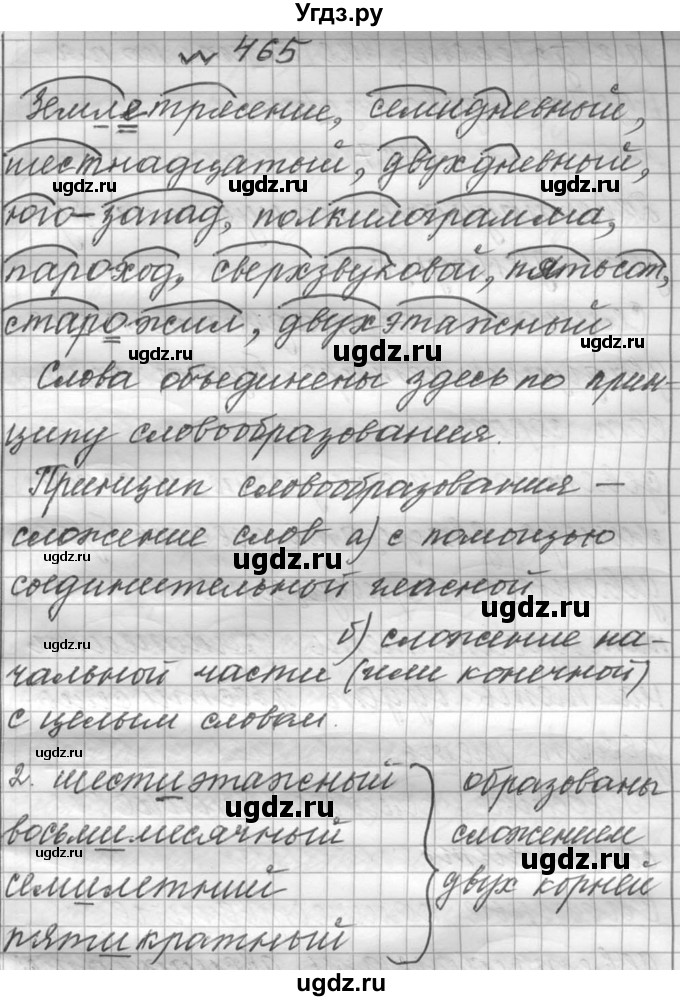 Угдз.ру
№ 465
Землетрясение, семидневный,
шестнадцатый, двухдневный,
ugdz.ru ugdz.ru
юго-запад, полкилограмма,
ugdz.ru
пароход, сверхзвуковой, пятьсот,
ugdz.ru
старожил, двухэтажный
ugdz.ru ugdz.ru
Слова объединены здесь по прин-
ugdz.ru
ципу словообразования.
ugdz.ru
Принцип словообразования –
сложение слов а) с помощью
ugdz.ru ugdz.ru
соединительной гласной
ugdz.ru
б) сложение на-
ugdz.ru
чальной части (или конечной)
с целым словом.
ugdz.ru
2. шестиэтажный образованы
ugdz.ru
восьмимесячный сложением
ugdz.ru ugdz.ru
семилетний двух корней
пятикратный
ugdz.ru
ugdz.ru